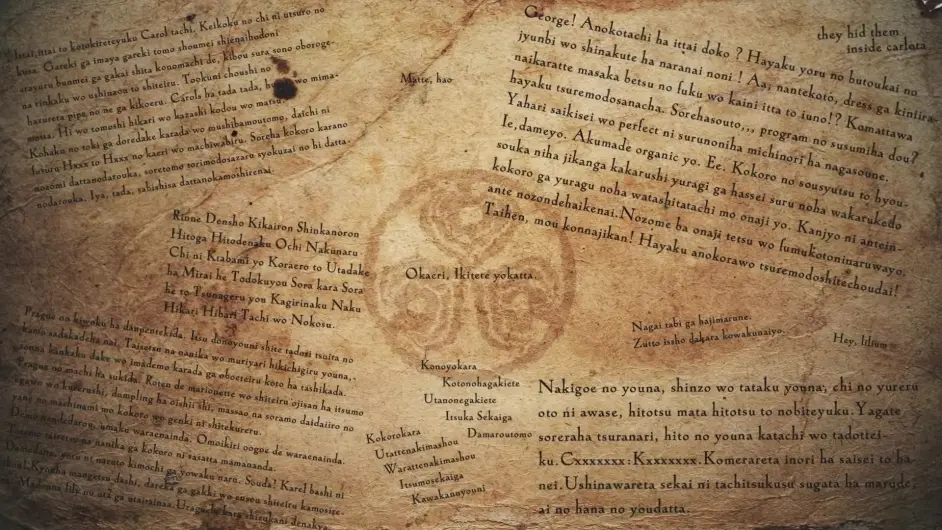 Ittai, ittai to kotokireteyuku Carol tachi. Keikoku no chi ni utsuro no
kusa. Gareki ga imaya gareki tomo shoumei shienaihodoni
bunmei ga gakai shita konomachi de, kibou sura sono oboroge-
na rinkaku wo ushinaou to shiteiru. Tookuni choushi no
hazureta pipe no ne ga kikoeru. Carols ha tada tada, wo mima-
motta. Hi wo tomoshi hikari wo kazashi kodou wo matsu.
Kohaku no toki ga doredake karada wo mushibamoutomo, daichi ni
futuru Hxxx to Hxxx no kaeri wo machiwabiru. Soreha kokoro karano
nozomi dattanodarouka, soretomo torimodosazaru ryokuzai no hi datta-
nodarouka. Iya, tada, tabishisa dattanokamoshirenai.
Matte, hao
George! Anokotachi ha ittai doko ? Hayaku yoru no butoukai no
jyunbi wo shinakute ha naranai noni ! A, nantekoto, dress ga kiniira-
naikaratte masaka betsu no fuku wo kaini itta to iuno!? Komattawa
hayaku tsuremodosanacha. Sorehasouto,,, program no susumiha dou?
Yahari saikisei wo perfect ni surunoniha michinori ha nagasoune.
Ie,dameyo. Akumade organic yo. Ee. Kokoro no sousyutsu to hyou-
souka niha jikanga kakarushi yuragi ga hassei suru noha wakarukedo
kokoro ga yuragu noha watashitatachi mo onaji yo. Kanjyo ni antein-
ante nozondehaikenai. Nozome ba onaji tetsu wo fumukotoninaruwayo.
Taihen, mou konnajikan! Hayaku anokorawo tsuremodoshitechoudai!
they hid them
inside carlota
Rione Densho Kikairon Shinkanoron
Hitoga Hitodenaku Ochi Nakunaru
Chi ni Kiabami yo Koraero to Utadake
ha Mirai he Todokuyou Sora kara Sora
he to Tsunageru you Kagirinaku Naku
Hikari Hibari Tachi wo Nokosu.
Okaeri, Ikitete yokatta.
Nagai tabi ga hajimarune.
Zuito issho dakara kowakunaiyo.
Hey, lilium
Prague no kioku ha daupentekida. Itsu donoyouni shite tadori tsuita no
kano sadakadeha nai. Taisetsu na nanika wo muriyari hikichigiru youna,
sonna kankaku dake wo imademo karada ga oboeteiru koto ha tashikada.
Prague no machi ha sukida. Roten de marionette wo shiteiru ojisan ha itsumo
egawo wo kurerushi, dumpling ha oishii shi, massao na soramo daidaiiro no
yane no machinami mo kokoro wo genki ni shitekureru.
Demo nandedarou, umaku waraenainda. Omoikiri oogoe de waraenainda.
taisetsu na nanika ga kokoro ni sasatta mamananda.
ni naruto kimochi ga yowaku naru. Souda! Karel bashi ni
Kyouha mangetsu dashi, dareka ga gakki wo ensou shiteiru kamoshire-
lily no uta ga utaitaina. Uraguchi kara shizukani denakya.
Konoyokara
Kotonohagakiete
Utanonegakiete
Itsuka Sekaiga
Damaroutomo
Kokorokara
Utattenkimashou
Warattenkimashou
Itsumosekaiga
Kawakanoyouni
Nakigoe no youna, shinzo wo tataku youna, chi no yureru
oto ni awase, hitotsu mata hitotsu to nobiteyuku. Yagate
soreraha tsuranari, hito no youna katachi wo tadottei-
ku. Cxxxxxxx : Kxxxxxxx. Komerareta inori ha saisei to ha-
nei. Ushinawareta sekai ni tachitsukusu sugata ha marude,
ai no hana no youdatta.